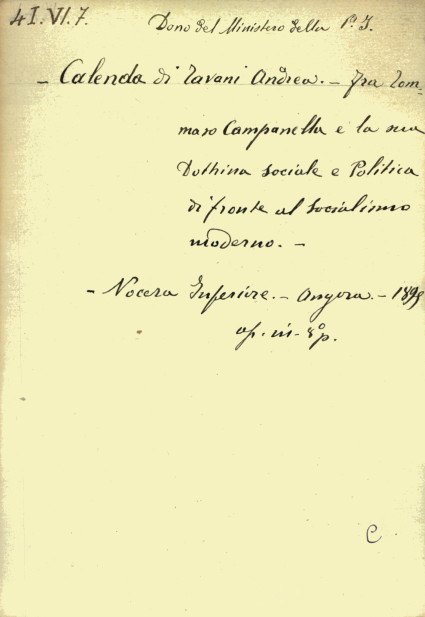 4I.VI.7. Dono del Ministero della P. I.
- Calenda di Tavani Andrea. - Fra Tom-
maso Campanella e la sua
Dottrina sociale e Politica
di fronte al socialismo
moderno. -
- Nocera Inferiore. - Angora. - 189
op. in-8º p.
C